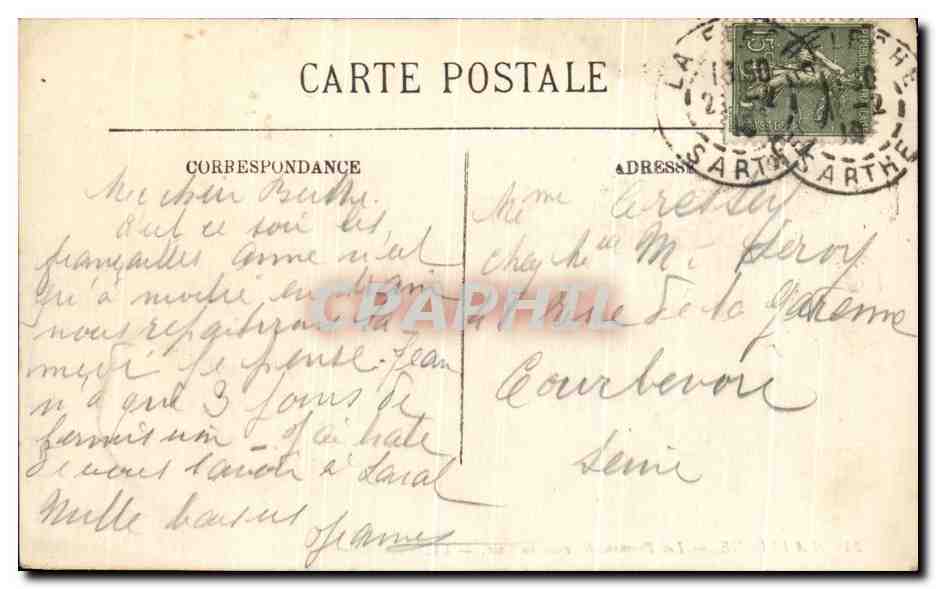 CARTE POSTALE
CORRESPONDANCE
ADRESSE
Ma chere Berthe.
C'est ce soir les
fiançailles Anne n'est
qu'à moitié en train
nous repartirons Sa-
medi je pense. Jean
n'a que 3 jours de
permission - J'ai hate
de vous savoir à Laval
Mille baisers
Jeanne
Mme Cressey
chez M. Leroy
rue de la Garenne
Courbevoie
Seine
LA FLECHE
SARTHE
LA FLECHE
SARTHE
15
CPAPHIL